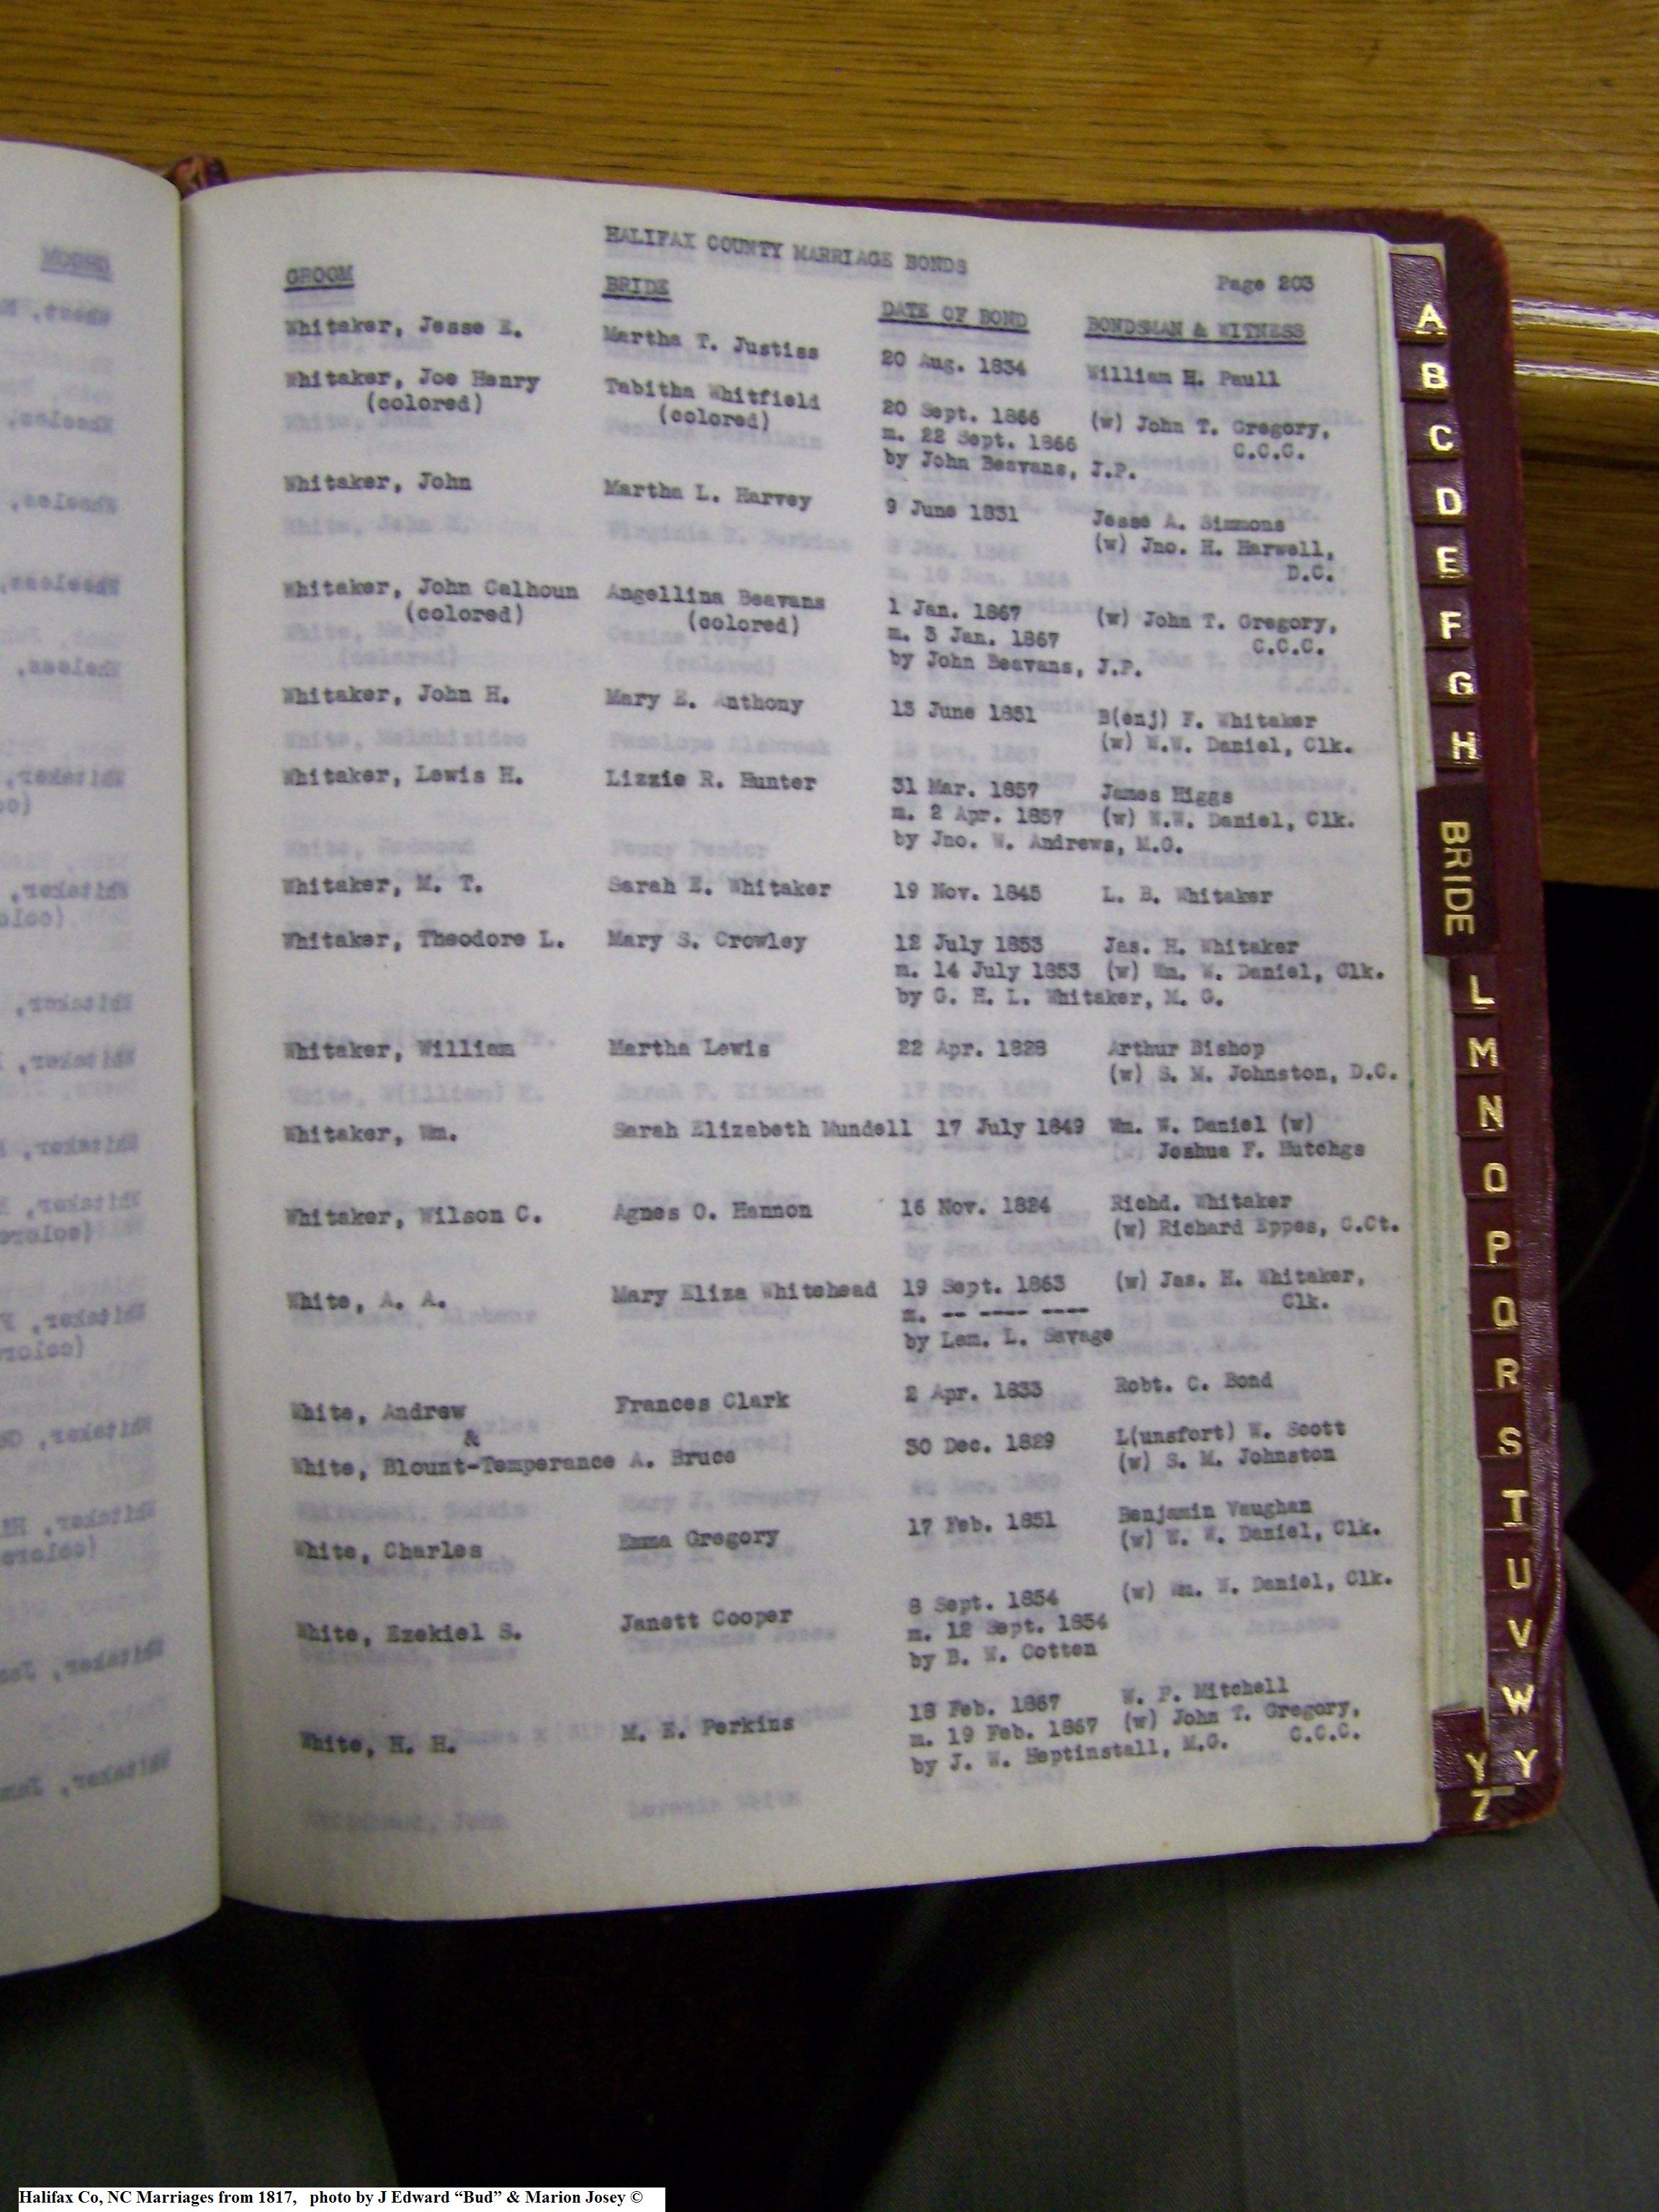 HALIFAX COUNTY MARRIAGE BONDS
Page 203
GROOM BRIDE DATE OF BOND BONDSMAN & WITNESS
Whitaker, Jesse E. Martha T. Justiss 20 Aug. 1834 William H. Paull
Whitaker, Joe Henry Tabitha Whitfield 20 Sept. 1866 (w) John T. Gregory,
(colored) (colored) m. 22 Sept. 1866 C.C.C.
by John Beavans, J.P.
Whitaker, John Martha L. Harvey 9 June 1831 Jesse A. Simmons
(w) Jno. H. Harwell,
D.C.
Whitaker, John Calhoun Angellina Beavans 1 Jan. 1867 (w) John T. Gregory,
(colored) (colored) m. 3 Jan. 1867 C.C.C.
by John Beavans, J.P.
Whitaker, John H. Mary E. Anthony 13 June 1851 B(enj) F. Whitaker
(w) W.W. Daniel, Clk.
Whitaker, Lewis H. Lizzie R. Hunter 31 Mar. 1857 James Higgs
m. 2 Apr. 1857 (w) W.W. Daniel, Clk.
by Jno. W. Andrews, M.G.
Whitaker, M. T. Sarah E. Whitaker 19 Nov. 1845 L. B. Whitaker
Whitaker, Theodore L. Mary S. Crowley 12 July 1853 Jas. H. Whitaker
m. 14 July 1853 (w) Wm. W. Daniel, Clk.
by G. H. L. Whitaker, M. G.
Whitaker, William Martha Lewis 22 Apr. 1828 Arthur Bishop
(w) S. M. Johnston, D.C.
Whitaker, Wm. Sarah Elizabeth Mundell 17 July 1849 Wm. W. Daniel (w)
Joshua F. Hutchgs
Whitaker, Wilson C. Agnes O. Hannon 16 Nov. 1824 Richd. Whitaker
(w) Richard Eppes, C.Ct.
White, A. A. Mary Eliza Whitehead 19 Sept. 1863 (w) Jas. H. Whitaker,
m. -- ---- ---- Clk.
by Lem. L. Savage
White, Andrew Frances Clark 2 Apr. 1833 Robt. C. Bond
&
White, Blount-Temperance A. Bruce 30 Dec. 1829 L(unsfort) W. Scott
(w) S. M. Johnston
White, Charles Emma Gregory 17 Feb. 1851 Benjamin Vaughan
(w) W. W. Daniel, Clk.
White, Ezekiel S. Janett Cooper 8 Sept. 1854 (w) Wm. W. Daniel, Clk.
m. 12 Sept. 1854
by B. W. Cotten
White, H. H. M. E. Perkins 18 Feb. 1867 W. P. Mitchell
m. 19 Feb. 1867 (w) John T. Gregory,
by J. W. Heptinstall, M.G. C.C.C.
A
B
C
D
E
F
G
H
BRIDE
L
M
N
O
P
Q
R
S
T
U
V
W
Y Y
Z
Halifax Co, NC Marriages from 1817, photo by J Edward “Bud” & Marion Josey ©